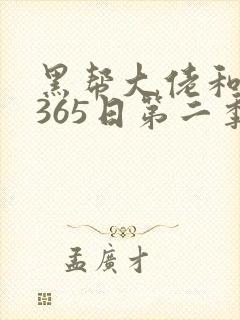 黑帮大佬和
365日第二季
孟廣才